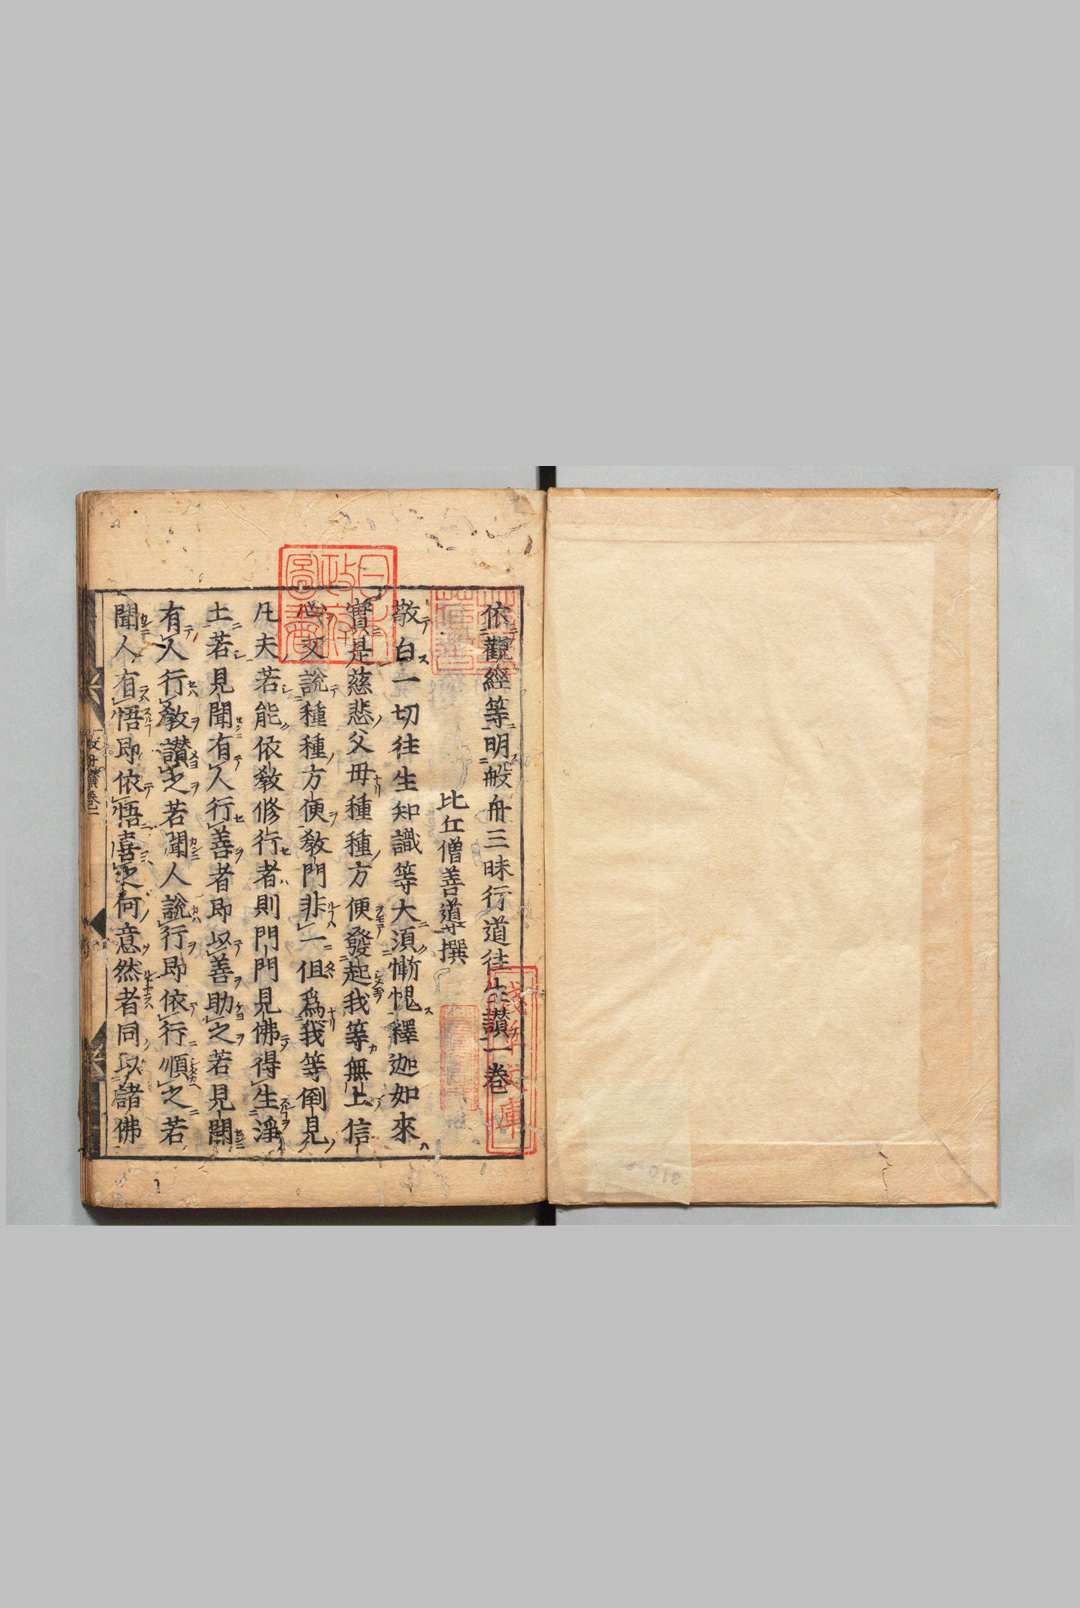 依觀經等明般舟三昧行道往生讚一卷
比丘僧善導撰
敬白一切往生知識等大須慚愧釋迦如來
實是慈悲父母種種方便發起我等無上信
心又說種種方便敎門非一但爲我等倒見
凡夫若能依敎修行者則門門見佛得生淨
土若見聞有人行善者即以善助之若見聞
有人行敎讚之若聞人說行即依行順之若
聞人有悟即依悟喜之何意然者同以諸佛
日本政府圖書
淺草文庫